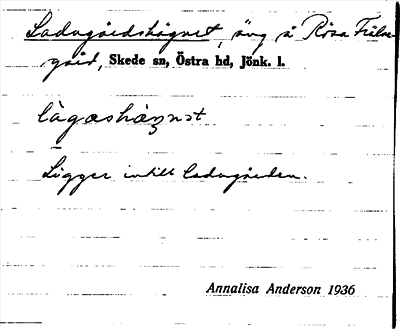 Ladugårdshägnet, äng å Rösa Frälse-
gård, Skede sn, Östra hd, Jönk. l.
làgashæŋnət
Ligger intill ladugården.
Annalisa Anderson 1936